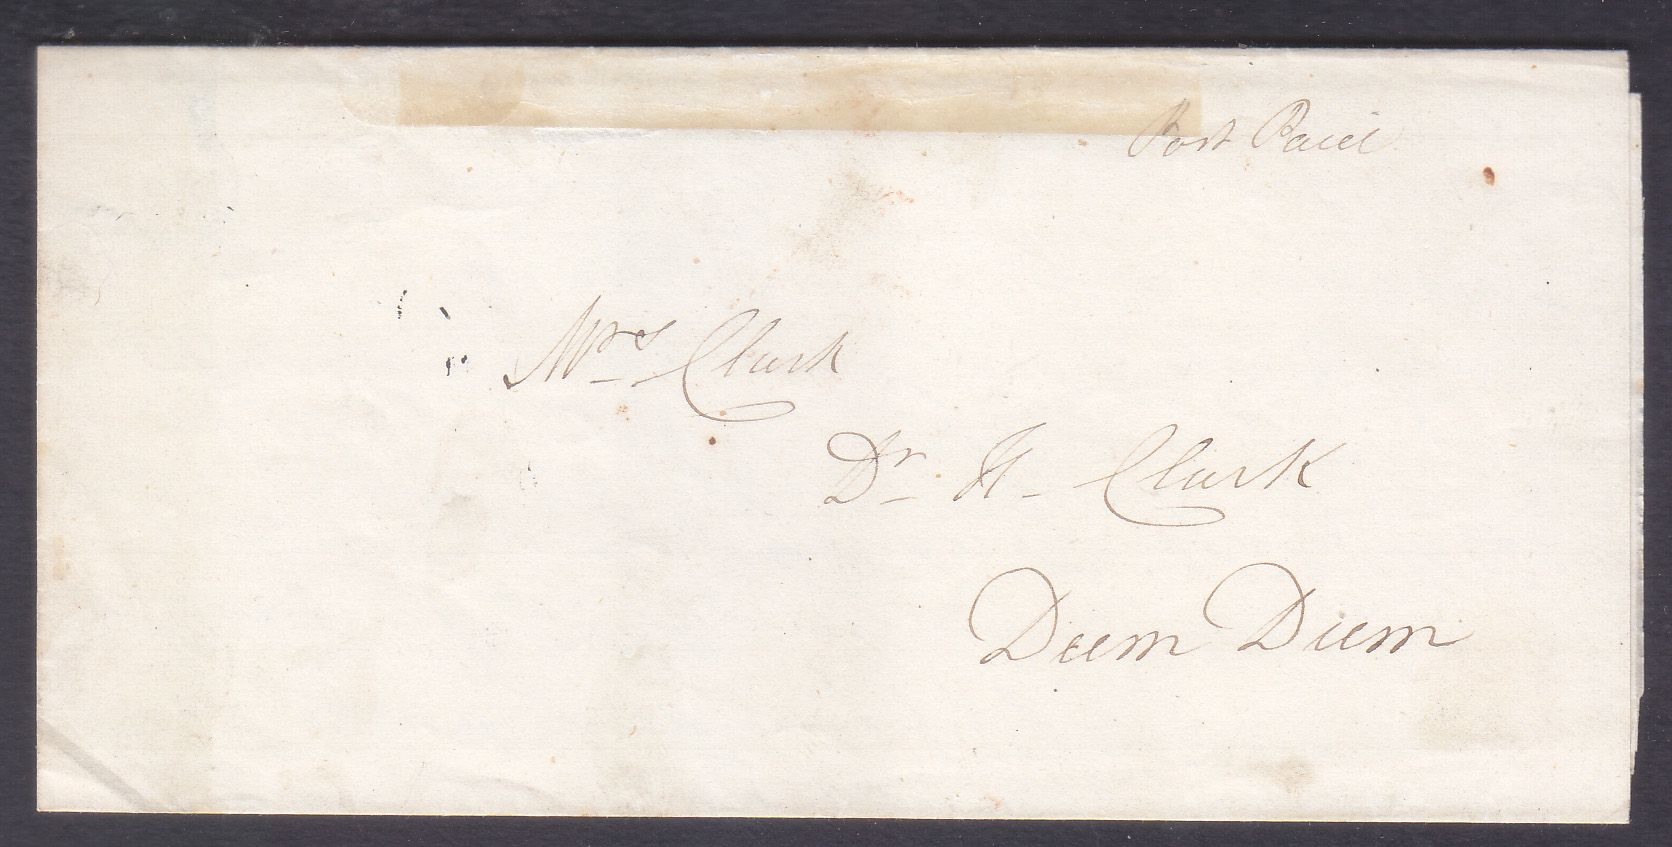 Post Paid
Mrs Clark
Dr H Clark
Dum Dum